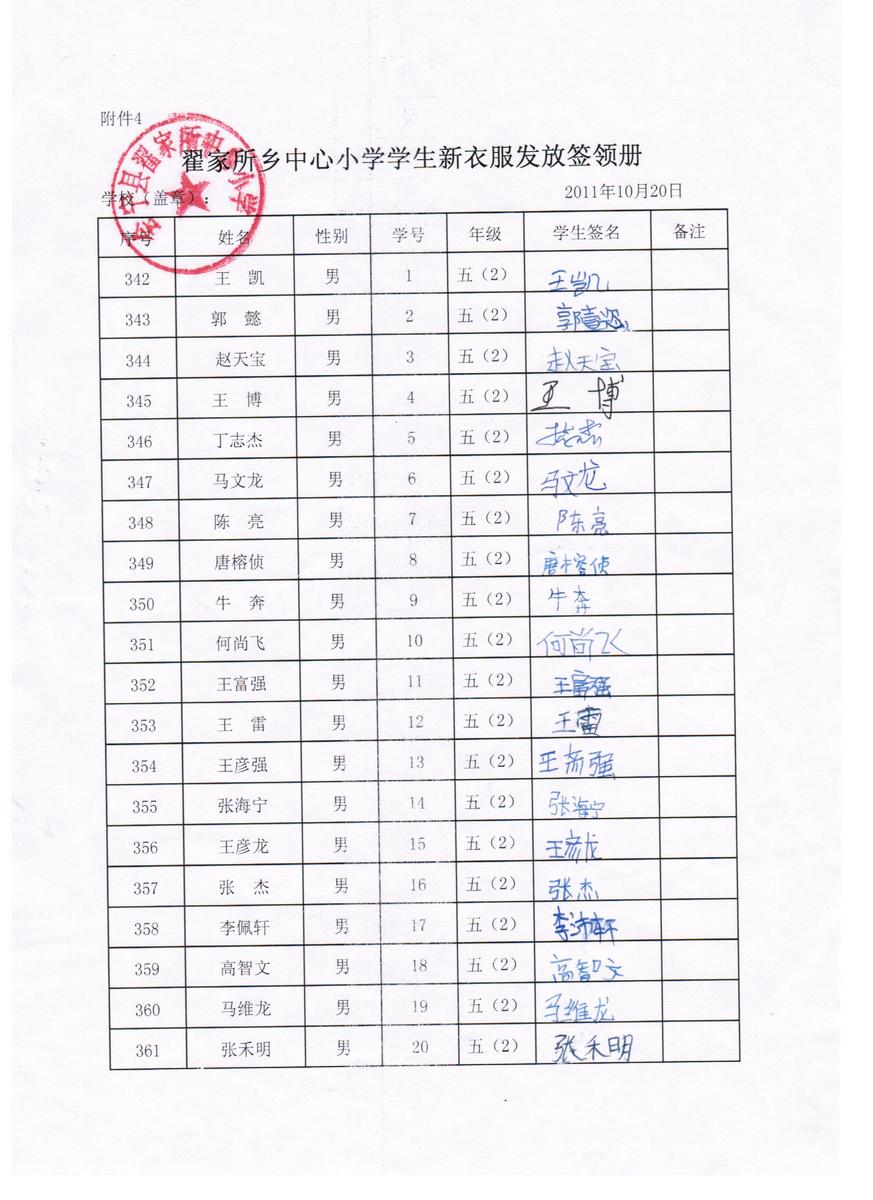 附件4
翟家所乡中心小学学生新衣服发放签领册
学校（盖章）： 2011年10月20日
序号 姓名 性别 学号 年级 学生签名 备注
342 王 凯 男 1 五（2） 王凯
343 郭 懿 男 2 五（2） 郭懿
344 赵天宝 男 3 五（2） 赵天宝
345 王 博 男 4 五（2） 王 博
346 丁志杰 男 5 五（2）
347 马文龙 男 6 五（2） 马文龙
348 陈 亮 男 7 五（2） 陈亮
349 唐榕侦 男 8 五（2） 唐榕侦
350 牛 奔 男 9 五（2） 牛奔
351 何尚飞 男 10 五（2） 何尚飞
352 王富强 男 11 五（2） 王富强
353 王 雷 男 12 五（2） 王雷
354 王彦强 男 13 五（2） 王彦强
355 张海宁 男 14 五（2） 张海宁
356 王彦龙 男 15 五（2） 王彦龙
357 张 杰 男 16 五（2） 张杰
358 李佩轩 男 17 五（2） 李沛轩
359 高智文 男 18 五（2） 高智文
360 马维龙 男 19 五（2） 马维龙
361 张禾明 男 20 五（2） 张禾明